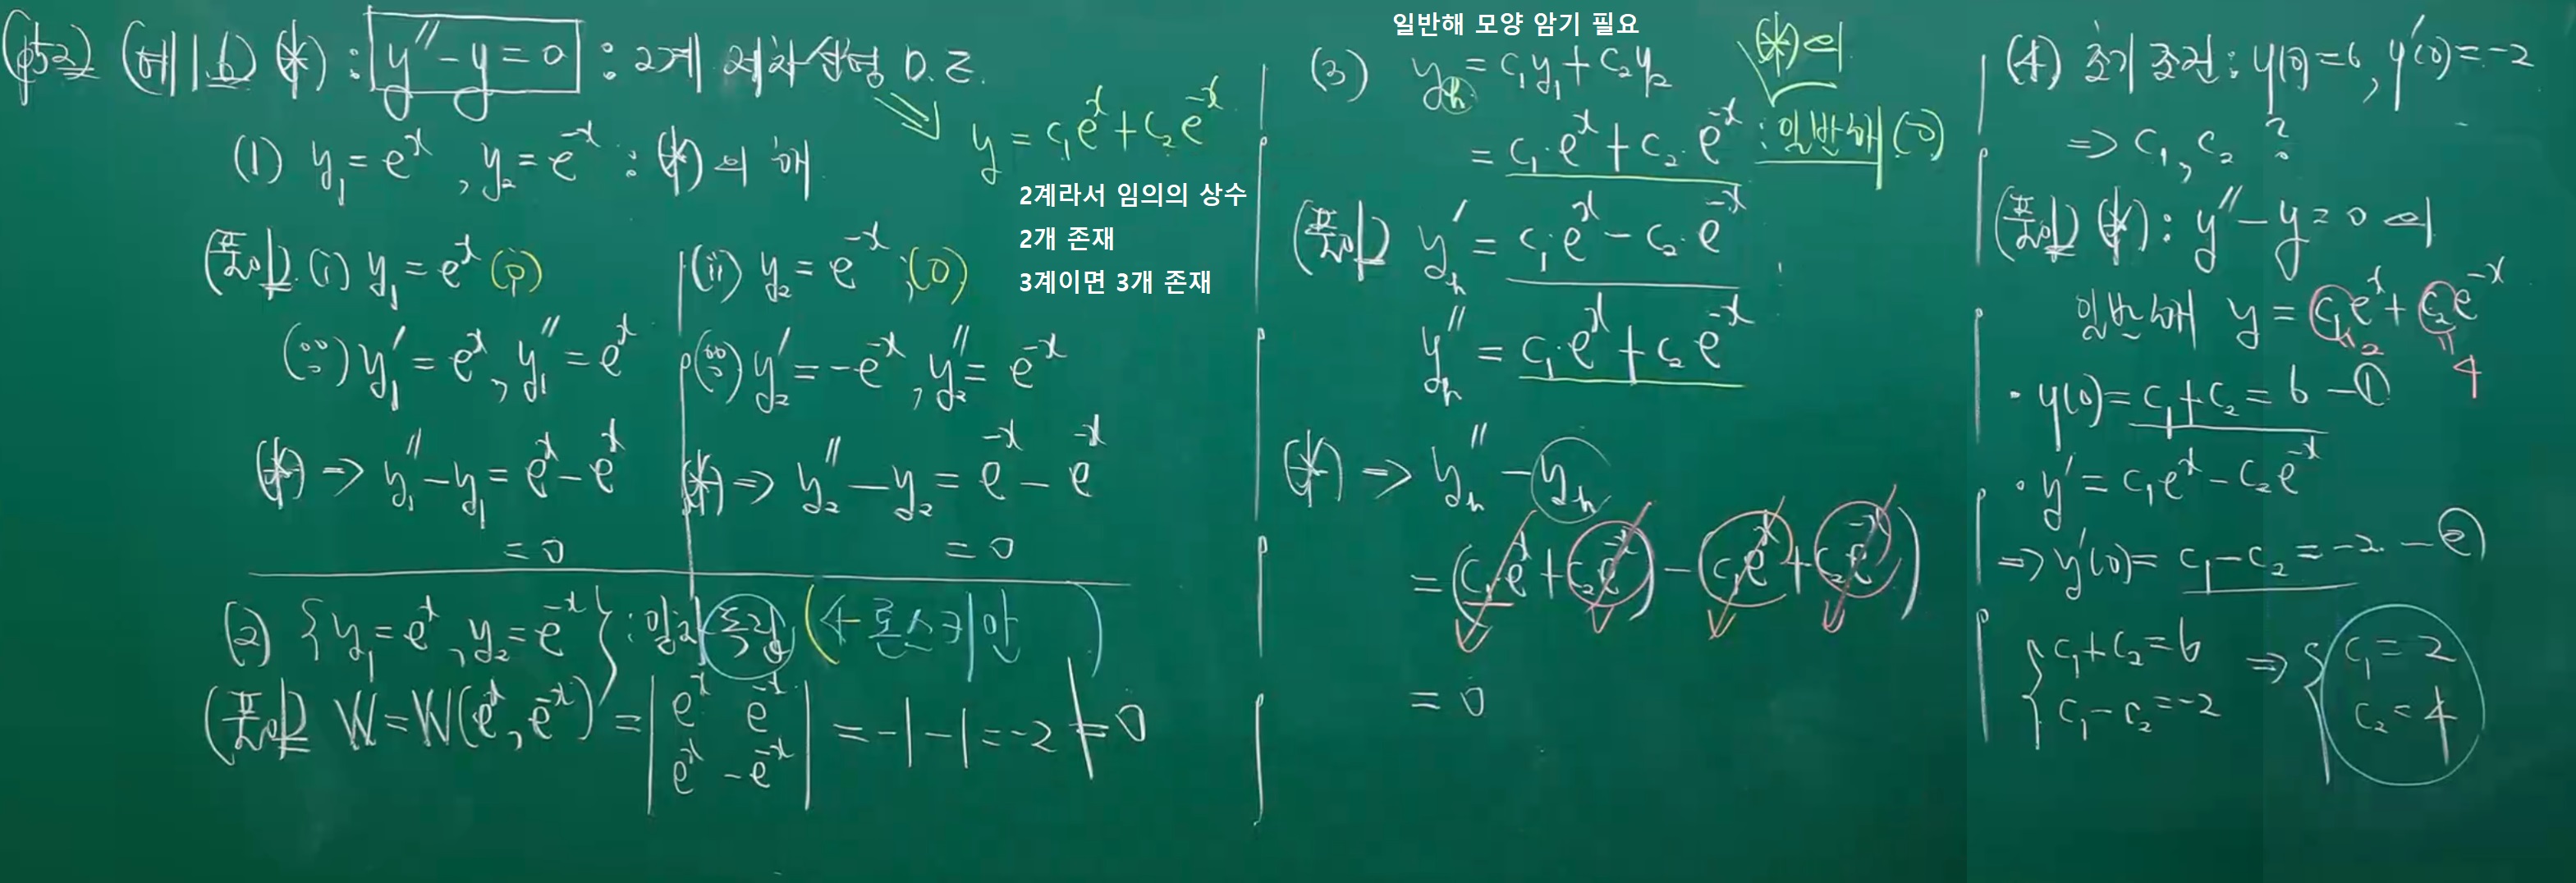 (p52) (예1.6) (*) : y'' - y = 0 : 2계 제차선형 D.E.
(1) y₁ = eˣ, y₂ = e⁻ˣ : (*)의 해
y = c₁eˣ + c₂e⁻ˣ
2계라서 임의의 상수
2개 존재
3계이면 3개 존재
(풀이) (i) y₁ = eˣ (o)
(∵) y₁' = eˣ, y₁'' = eˣ
(*) => y₁'' - y₁ = eˣ - eˣ
= 0
(ii) y₂ = e⁻ˣ ; (o)
(∵) y₂' = -e⁻ˣ, y₂'' = e⁻ˣ
(*) => y₂'' - y₂ = e⁻ˣ - e⁻ˣ
= 0
(2) {y₁ = eˣ, y₂ = e⁻ˣ} : 일차독립 (론스키안)
(풀이) W = W(eˣ, e⁻ˣ) = | eˣ e⁻ˣ | = -1 - 1 = -2 ≠ 0
eˣ -e⁻ˣ
일반해 모양 암기 필요
(3) y_h = c₁y₁ + c₂y₂ (*)의
= c₁·eˣ + c₂·e⁻ˣ : 일반해 (o)
(풀이) y_h' = c₁·eˣ - c₂·e⁻ˣ
y_h'' = c₁·eˣ + c₂e⁻ˣ
(*) => y_h'' - y_h
= (c₁·eˣ + c₂e⁻ˣ) - (c₁eˣ + c₂e⁻ˣ)
= 0
(4) 초기조건 : y(0) = 6, y'(0) = -2
=> c₁, c₂ ?
(풀이) (*) : y'' - y = 0 의
일반해 y = c₁eˣ + c₂e⁻ˣ
" 2 " 4
· y(0) = c₁ + c₂ = 6 - ①
· y' = c₁eˣ - c₂e⁻ˣ
=> y'(0) = c₁ - c₂ = -2 - ②
{ c₁ + c₂ = 6 => { c₁ = 2
c₁ - c₂ = -2 c₂ = 4